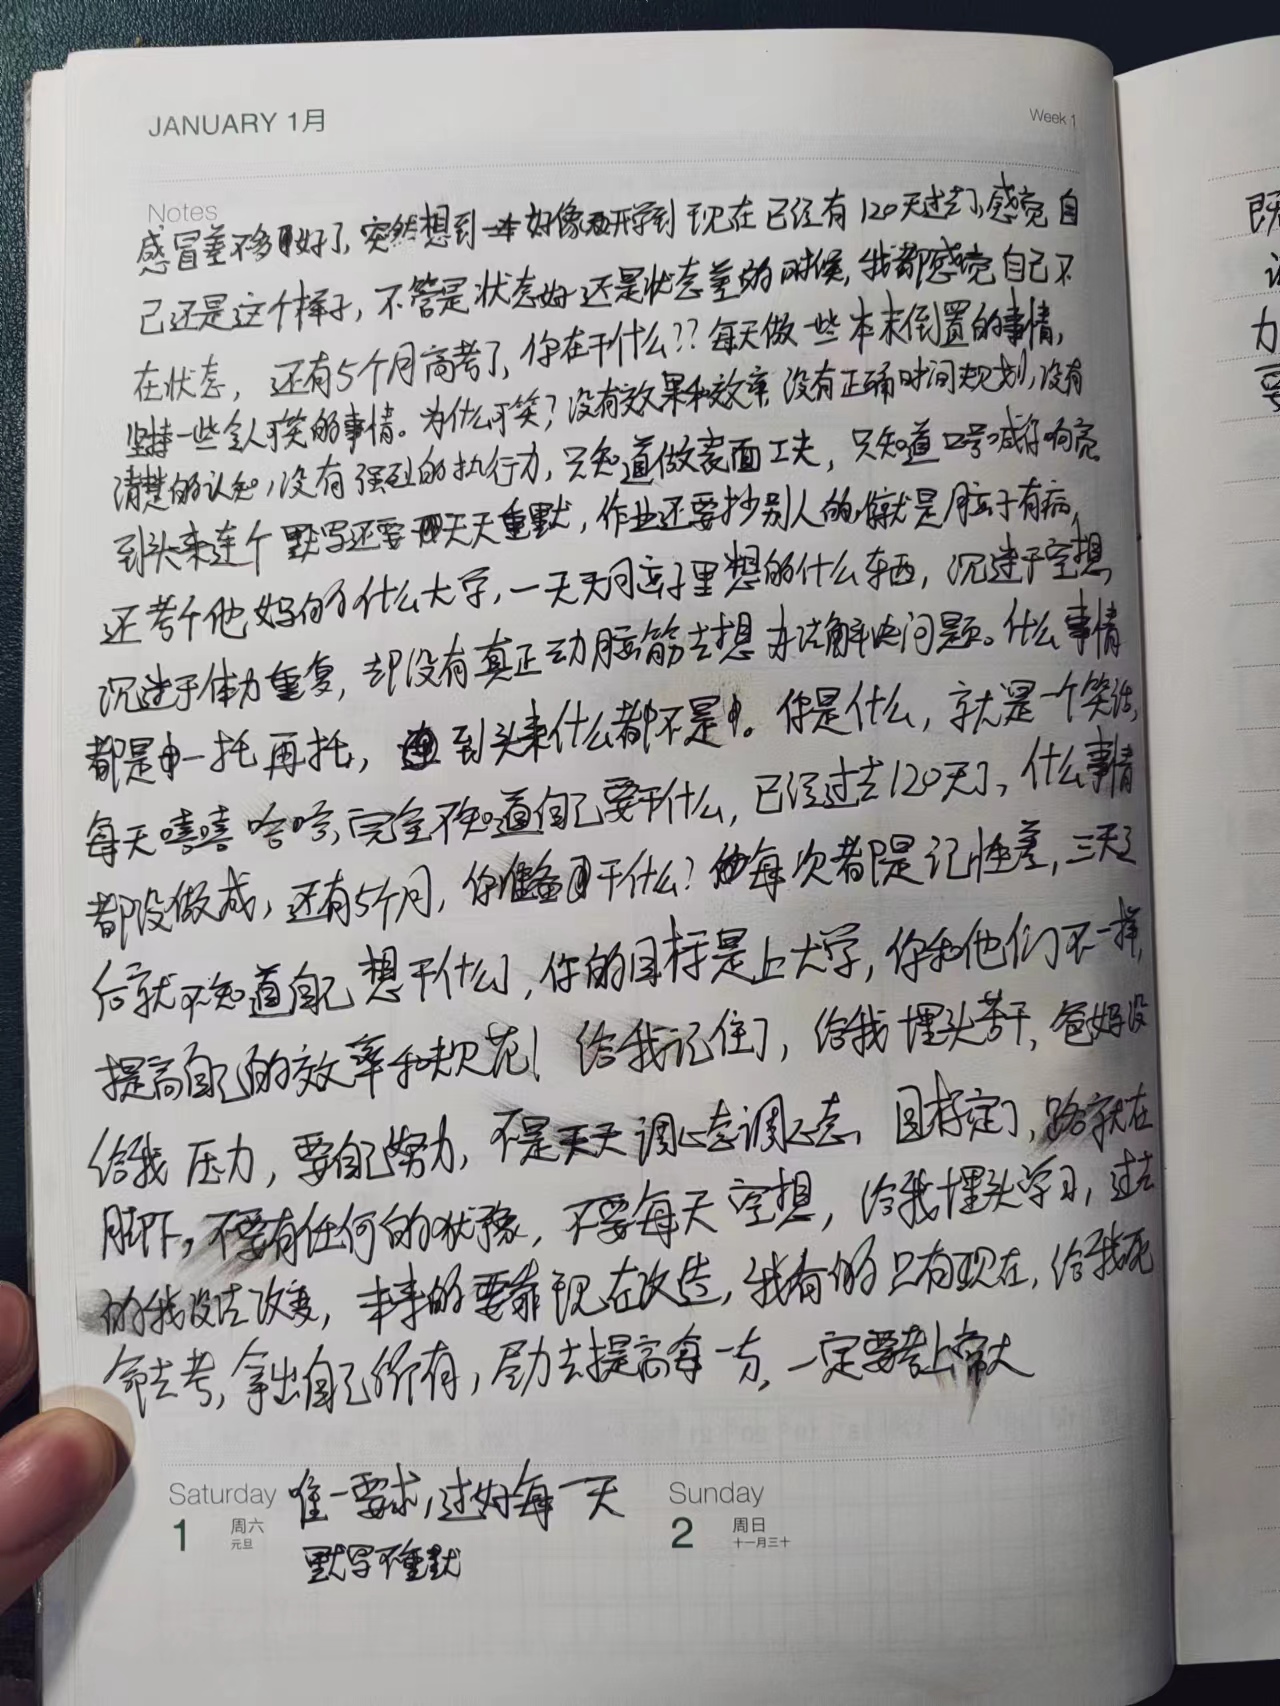 JANUARY 1月
Week 1
Notes
感冒差不多好了，突然想到 好像从开学到现在已经有120天过去了，感觉自
己还是这个样子，不管是状态好还是状态差的时候，我都感觉自己不
在状态，还有5个月高考了，你在干什么？？每天做一些本末倒置的事情，
坚持一些令人可笑的事情。为什么可笑？没有效果和效率，没有正确时间规划，没有
清楚的认知，没有强烈的执行力，只知道做表面工夫，只知道口号喊得响亮。
到头来连个默写还要天天重默，作业还要抄别人的，你就是脑子有病，
还考个他妈的什么大学，一天天闷脑子里想的什么东西，沉迷于空想，
沉迷于体力重复，却没有真正动脑筋去想办法解决问题。什么事情
都是一托再托，到头来什么都不是。你是什么，就是一个笑话，
每天嘻嘻哈哈，完全不知道自己要干什么，已经过去120天了，什么事情
都没做成，还有5个月，你准备干什么？每次都是记性差，三天之
后就不知道自己想干什么了，你的目标是上大学，你和他们不一样，
提高自己的效率和规范！给我记住了，给我埋头苦干，爸妈没
给我压力，要自己努力，不是天天调心态调心态，目标定了，路就在
脚下，不要有任何的犹豫，不要每天空想，给我埋头学习，过去
的我没法改变，未来的要靠现在改造，我有的只有现在，给我死
命去考，拿出自己所有，尽力去提高每一分，一定要考上常大
Saturday 唯一要求，过好每一天
1 周六 元旦
默写不重默
Sunday
2 周日 十一月三十
既
力
要